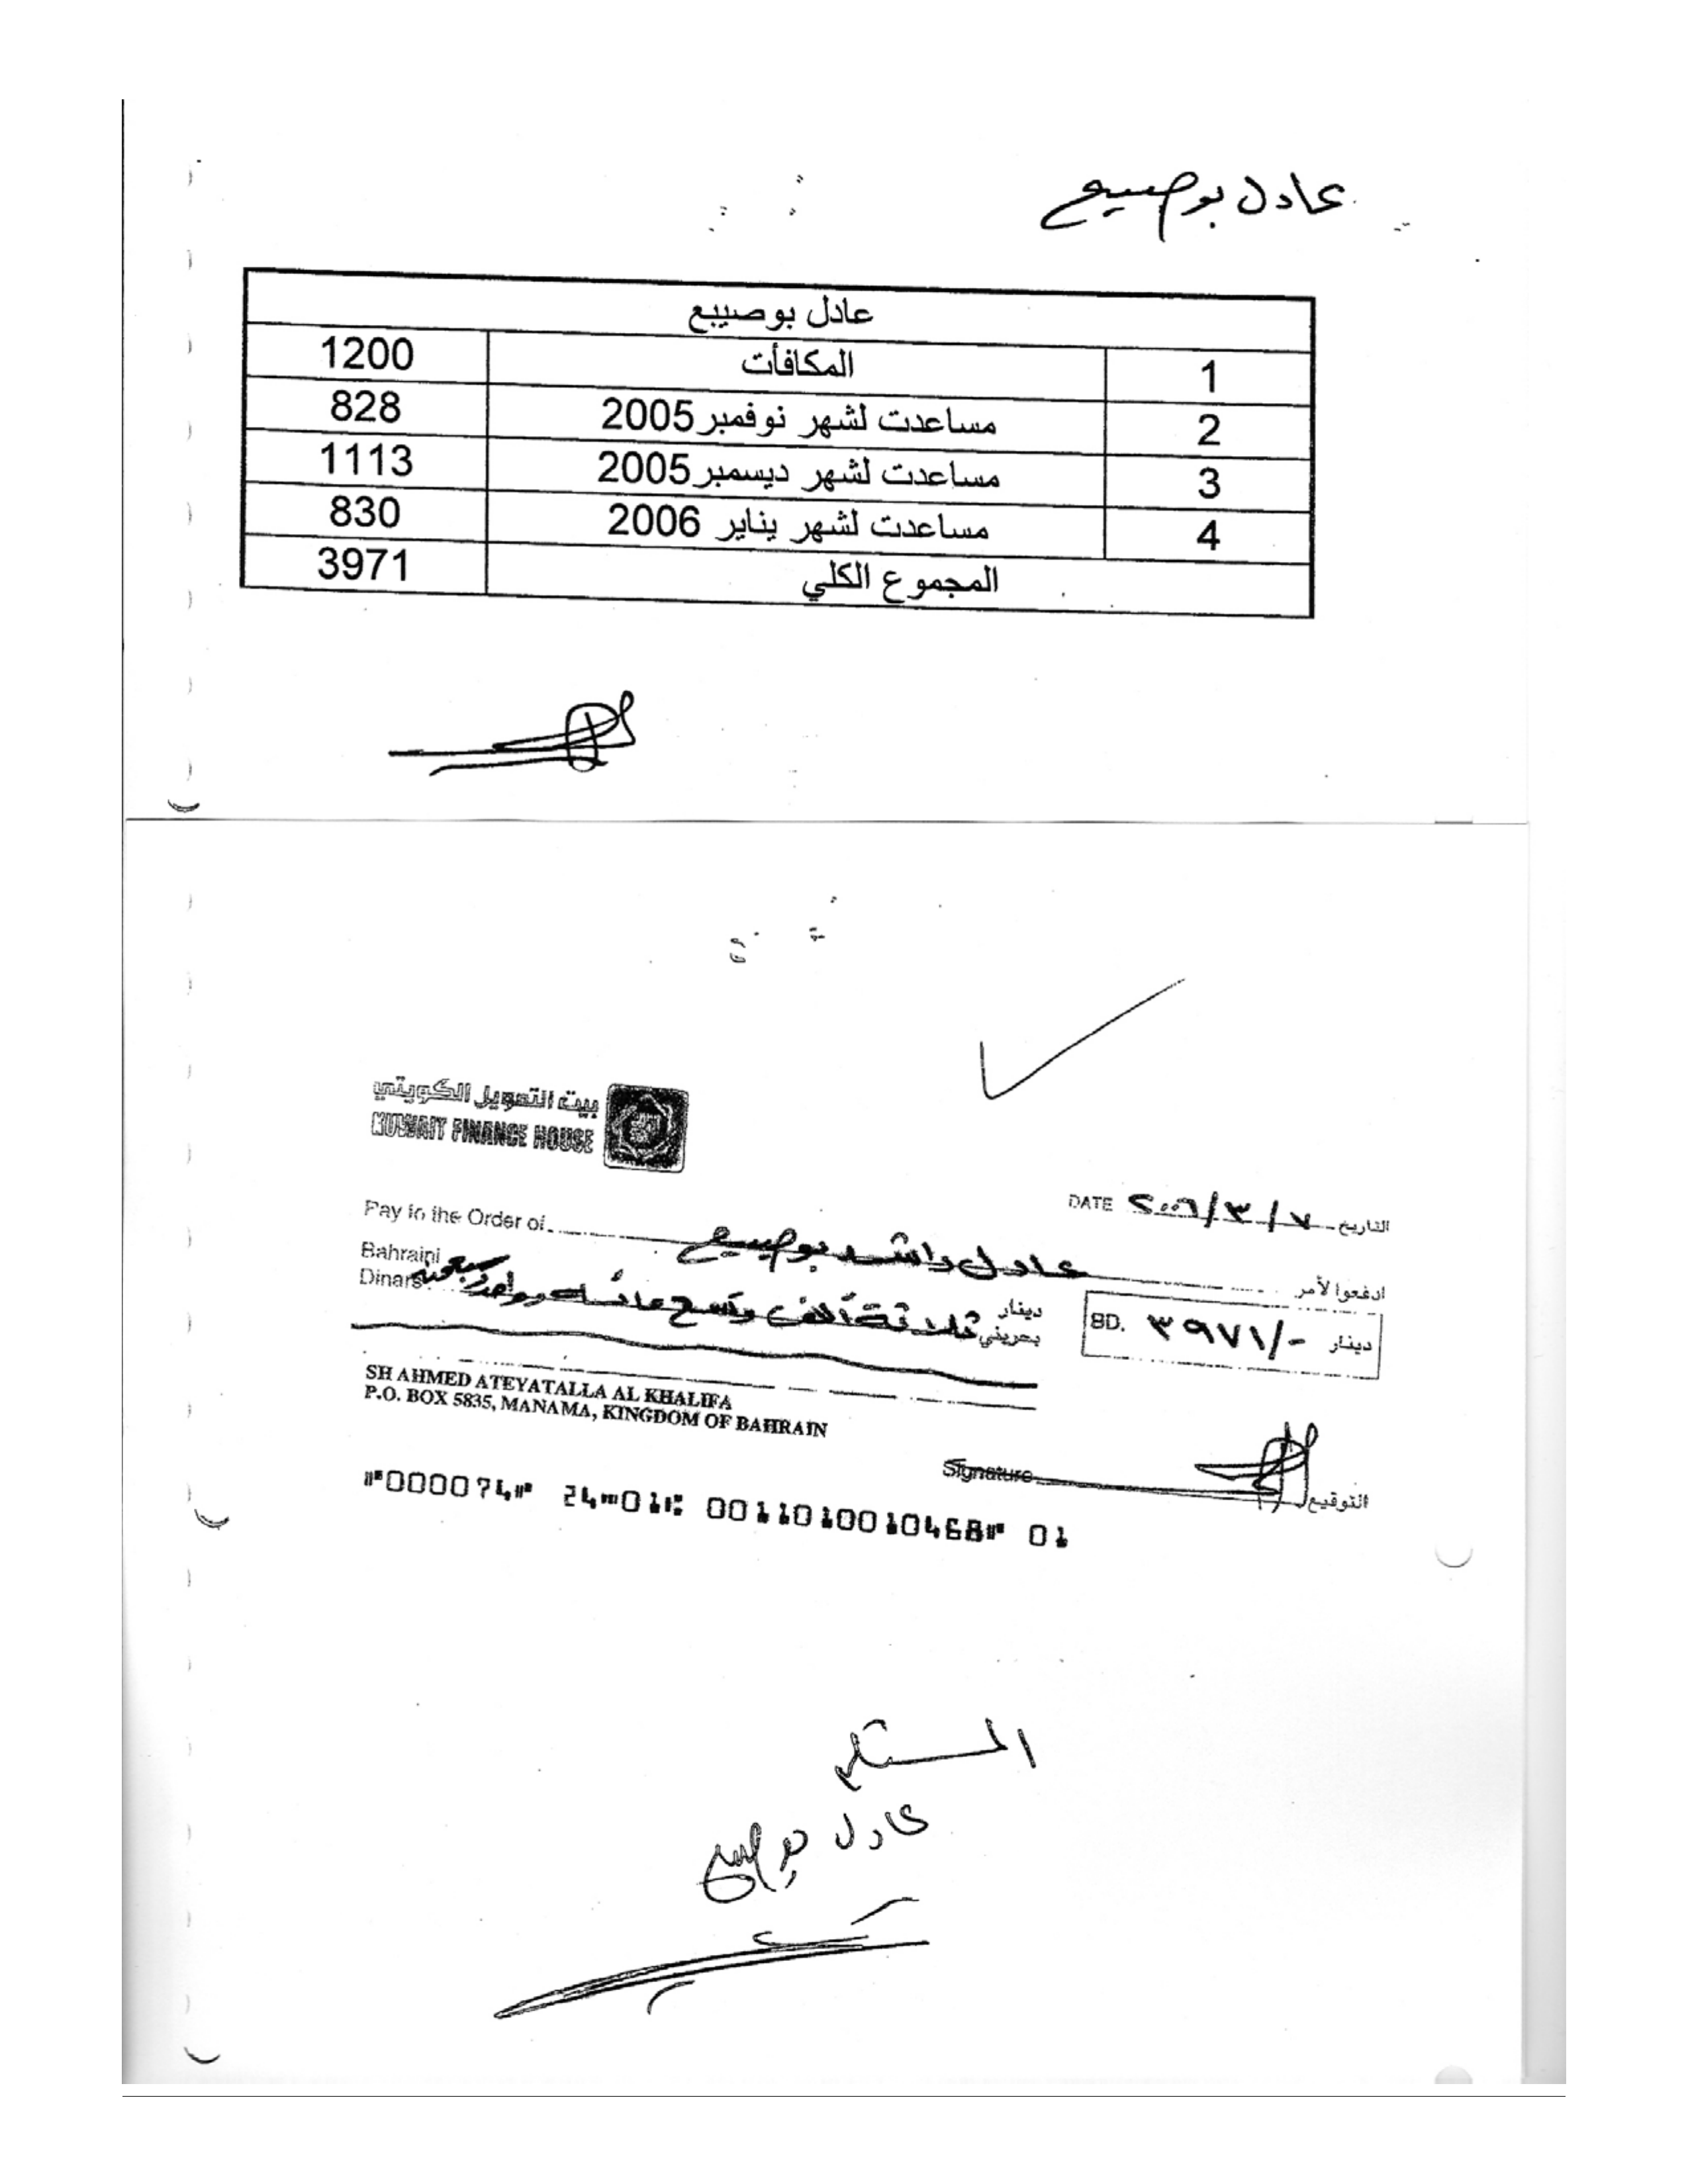 عادل بوصيبع
عادل بوصيبع
1 المكافأت 1200
2 مساعدت لشهر نوفمبر 2005 828
3 مساعدت لشهر ديسمبر 2005 1113
4 مساعدت لشهر يناير 2006 830
المجموع الكلي 3971
بيت التمويل الكويتي
KUWAIT FINANCE HOUSE
DATE ٢٠٠٦/٣/٧ التاريخ
Pay to the Order of عادل راشد بوصيبع ادفعوا لأمر
Bahraini Dinars دينار بحريني ثلاثة آلاف وتسع مائة وواحد وسبعين
BD. ٣٩٧١/- دينار
SH AHMED ATEYATALLA AL KHALIFA
P.O. BOX 5835, MANAMA, KINGDOM OF BAHRAIN
Signature التوقيع
⑈000074⑈ 24⑉01⑆ 0011010010468⑈ 01
المستلم
عادل بوصيبع